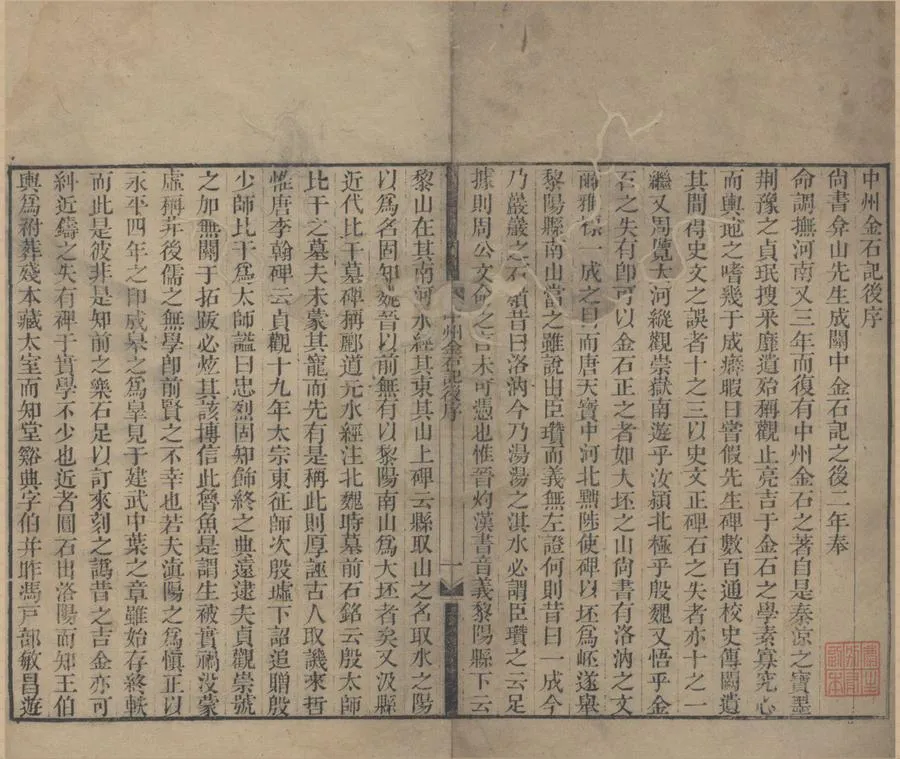 中州金石記後序
尚書弇山先生成關中金石記之後二年奉
命調撫河南又三年而復有中州金石之著自是秦涼之寶墨
荆豫之貞珉搜采靡遺殆稱觀止亮吉于金石之學素寡究心
而輿地之嗜幾于成癖暇日嘗假先生碑數百通校史傳闕遺
其間得史文之誤者十之三以史文正碑石之失者亦十之一
繼又周覽大河縱觀崇嶽南遊乎汝潁北極乎殷魏又悟乎金
石之失有卽可以金石正之者如大坯之山尙書有洛汭之文
爾雅標一成之目而唐天寶中河北黜陟使碑以坯爲岯遂舉
黎陽縣南山當之雖說由臣瓚而義無左證何則昔曰一成今
乃巖巖之石嶺昔曰洛汭今乃湯湯之淇水必謂臣瓚之云足
據則周公文命之言未可憑也惟晉灼漢書音義黎陽縣下云
中州金石記後序
一
黎山在其南河水經其東其山上碑云縣取山之名取水之陽
以爲名固知魏晉以前無有以黎陽南山爲大坯者矣又汲縣
近代比干墓碑稱酈道元水經注北魏時墓前石銘云殷太師
比干之墓夫未蒙其寵而先有是稱此則厚誣古人取譏來哲
惟唐李翰碑云貞觀十九年太宗東征師次殷墟下詔追贈殷
少師比干爲太師諡曰忠烈固知飾終之典遠逮夫貞觀崇號
之加無關于拓跋必炫其該博信此魯魚是謂生被實禍没蒙
虛稱并後儒之無學卽前賢之不幸也若夫滇陽之爲愼正以
永平四年之印成皋之爲皇見于建武中葉之章雖始存終軼
而此是彼非是知前之樂石足以訂來刻之譌昔之吉金亦可
糾近鑄之失有碑于實學不少也近者圓石出洛陽而知王伯
輿爲祔葬殘本藏太室而知堂谿典字伯并昨馮戸部敏昌遊